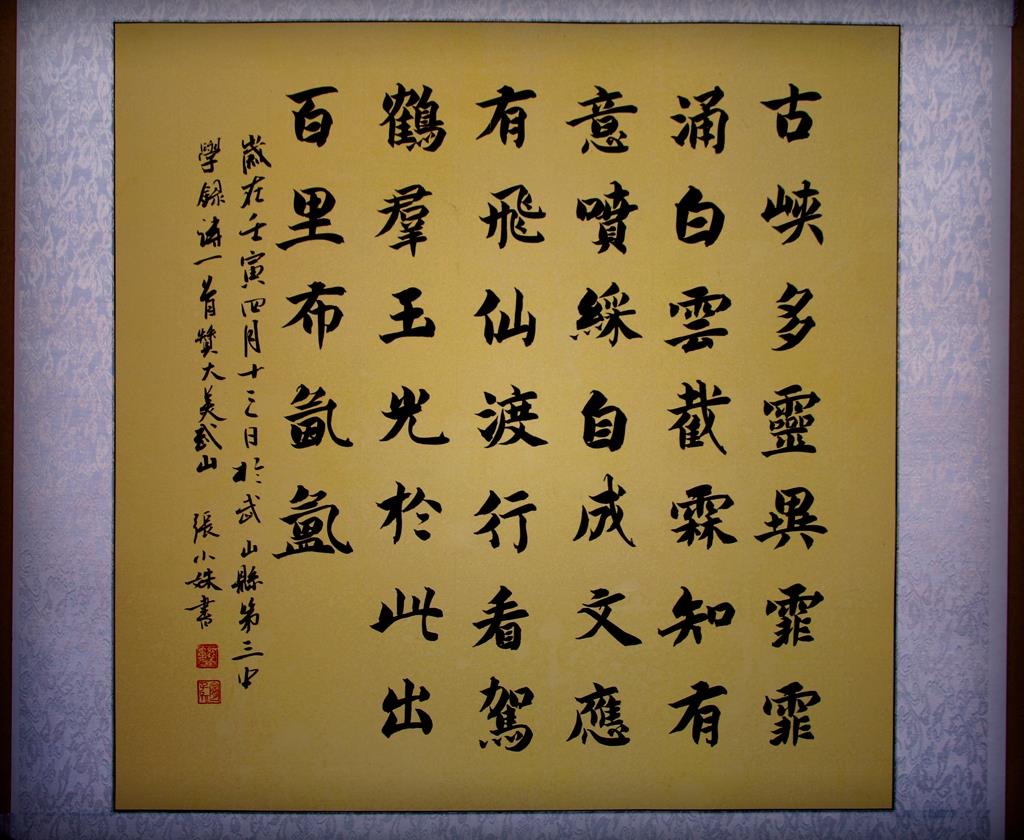 古峽多靈異霏霏
涌白雲截霖知有
意噴綵自成文應
有飛仙渡行看駕
鶴羣玉光於此出
百里布氤氳
歲在壬寅四月十三日於武山縣第三中
學錄詩一首贊大美武山 張小姝書